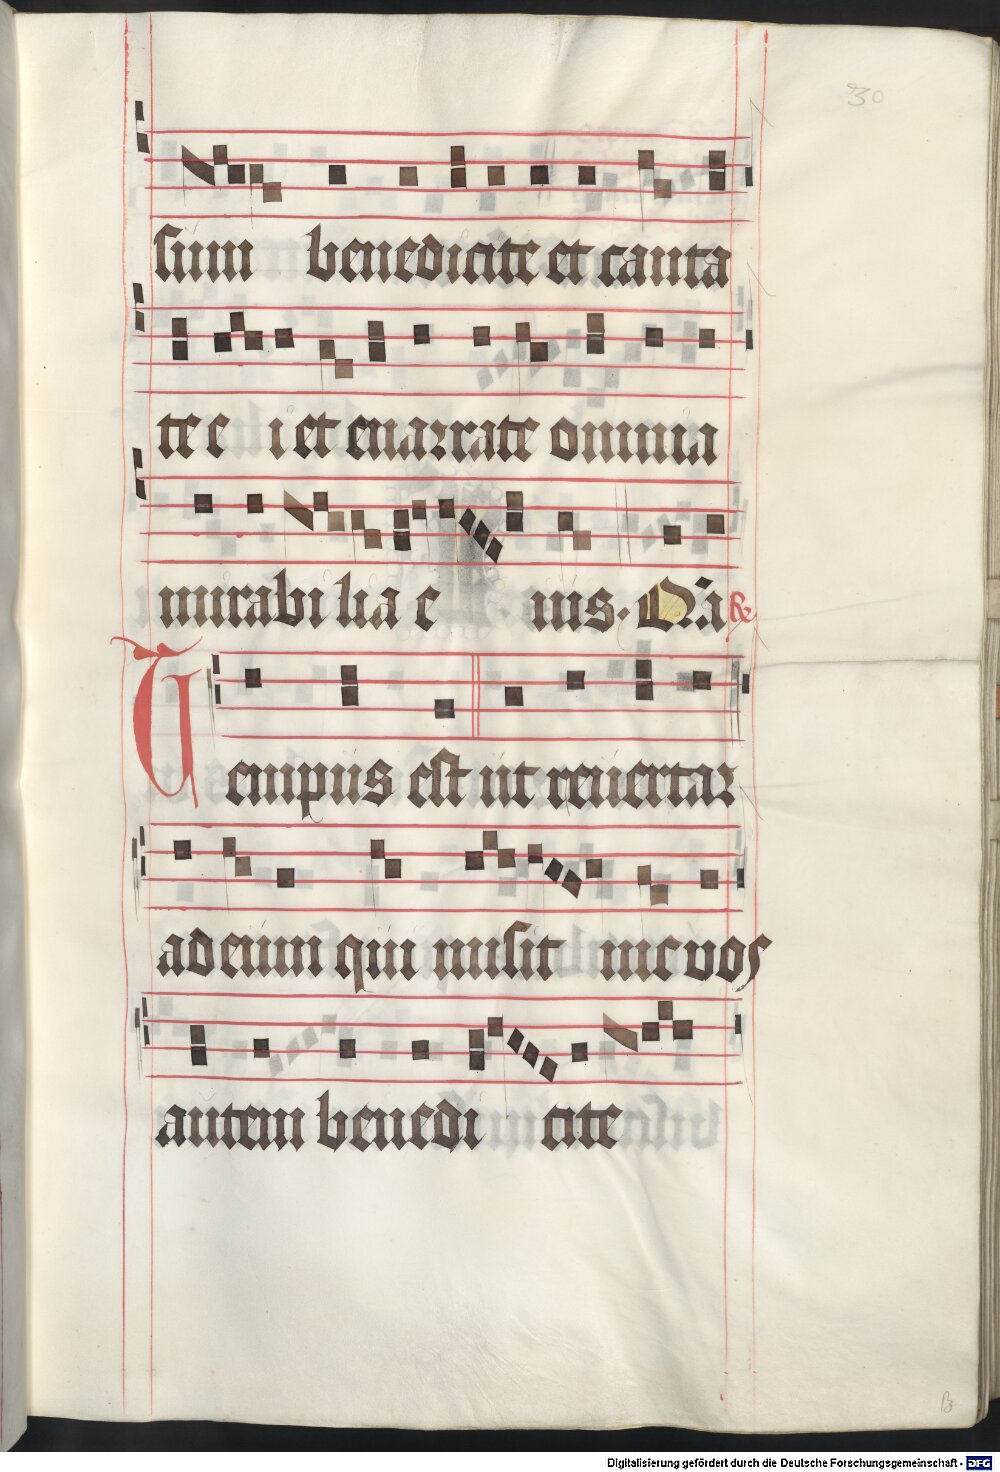 30
sum benedicite et canta
te e i et enarrate omnia
mirabi lia e ius. Qui R
Tempus est ut reuertar
ad eum qui misit me vos
autem benedi cite
B
Digitalisierung gefördert durch die Deutsche Forschungsgemeinschaft - DFG